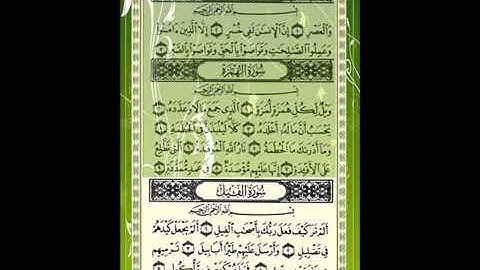 بِسْمِ ٱللَّهِ ٱلرَّحْمَٰنِ ٱلرَّحِيمِ
وَٱلْعَصْرِ ۝١ إِنَّ ٱلْإِنسَٰنَ لَفِى خُسْرٍ ۝٢ إِلَّا ٱلَّذِينَ ءَامَنُوا۟
وَعَمِلُوا۟ ٱلصَّٰلِحَٰتِ وَتَوَاصَوْا۟ بِٱلْحَقِّ وَتَوَاصَوْا۟ بِٱلصَّبْرِ ۝٣
سُورَةُ الهُمَزَةِ
بِسْمِ ٱللَّهِ ٱلرَّحْمَٰنِ ٱلرَّحِيمِ
وَيْلٌ لِّكُلِّ هُمَزَةٍ لُّمَزَةٍ ۝١ ٱلَّذِى جَمَعَ مَالًا وَعَدَّدَهُۥ ۝٢
يَحْسَبُ أَنَّ مَالَهُۥٓ أَخْلَدَهُۥ ۝٣ كَلَّا لَيُنۢبَذَنَّ فِى ٱلْحُطَمَةِ ۝٤
وَمَآ أَدْرَىٰكَ مَا ٱلْحُطَمَةُ ۝٥ نَارُ ٱللَّهِ ٱلْمُوقَدَةُ ۝٦ ٱلَّتِى تَطَّلِعُ
عَلَى ٱلْأَفْـِٔدَةِ ۝٧ إِنَّهَا عَلَيْهِم مُّؤْصَدَةٌ ۝٨ فِى عَمَدٍ مُّمَدَّدَةٍۭ ۝٩
سُورَةُ الفِيلِ
بِسْمِ ٱللَّهِ ٱلرَّحْمَٰنِ ٱلرَّحِيمِ
أَلَمْ تَرَ كَيْفَ فَعَلَ رَبُّكَ بِأَصْحَٰبِ ٱلْفِيلِ ۝١ أَلَمْ يَجْعَلْ كَيْدَهُمْ
فِى تَضْلِيلٍ ۝٢ وَأَرْسَلَ عَلَيْهِمْ طَيْرًا أَبَابِيلَ ۝٣ تَرْمِيهِم